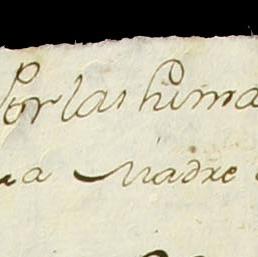 Por las huma
ua Madre